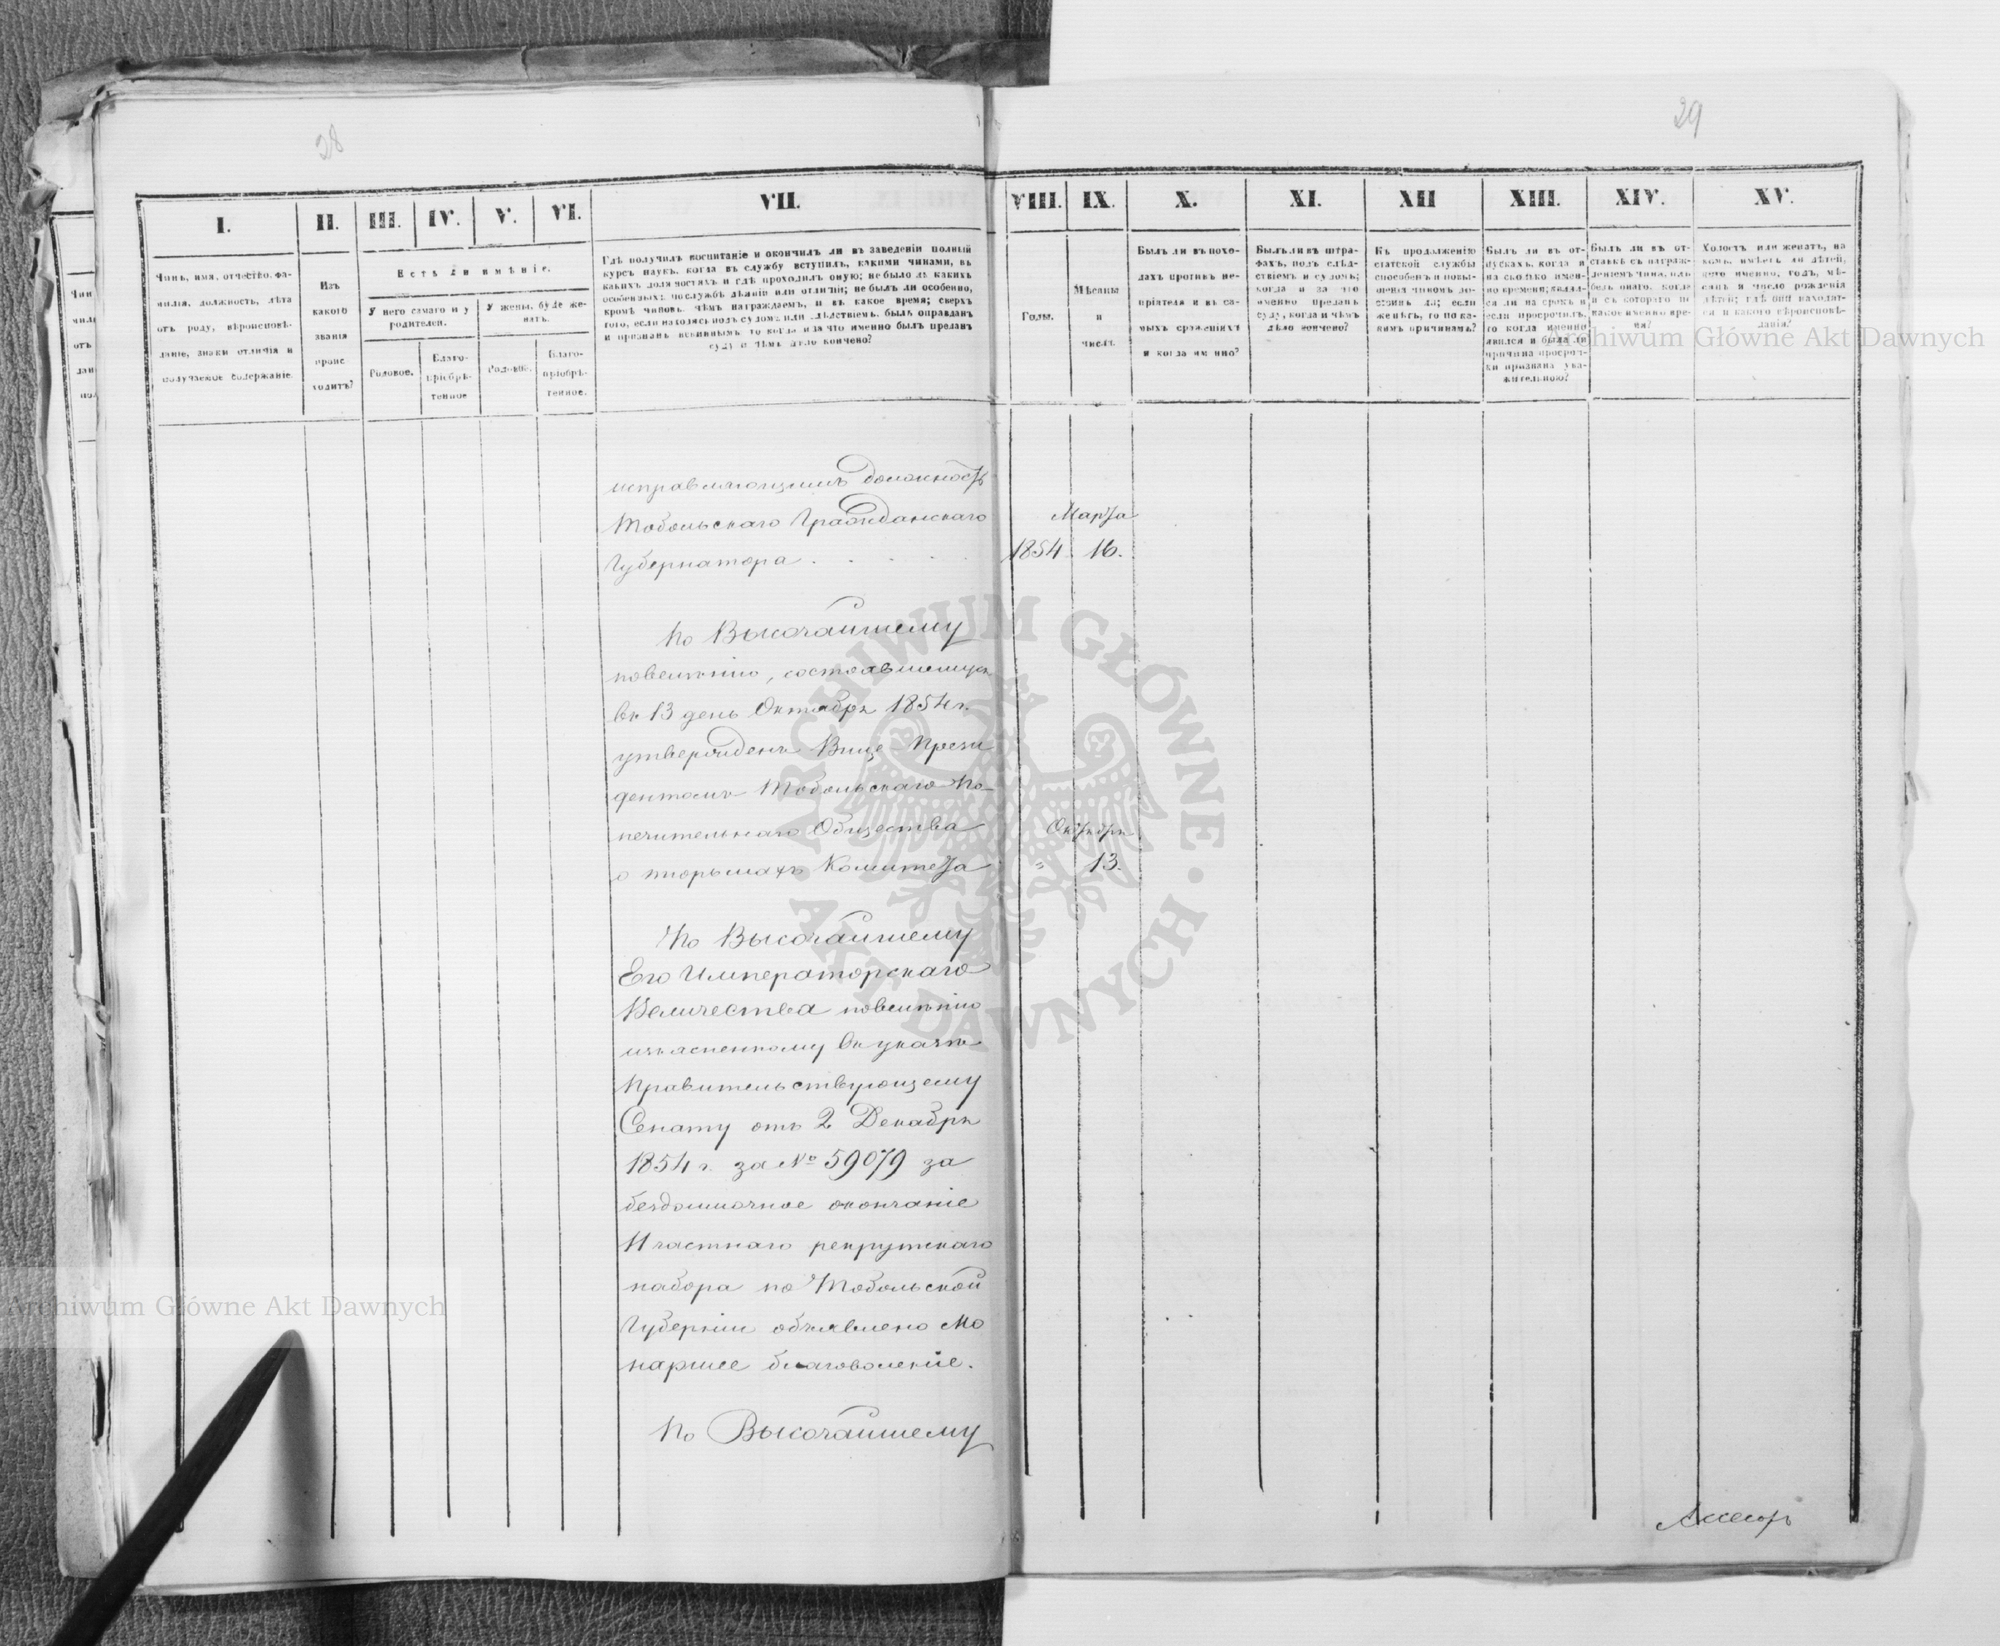 28
29
I.
II.
III.
IV.
V.
VI.
VII.
VIII.
IX.
X.
XI.
XII
XIII.
XIV.
XV.
Чинъ, имя, отчество, фа-
милія, должность, лѣта
отъ роду, вѣроисповѣ-
даніе, знаки отличія и
получаемое содержаніе.
Изъ
какого
званія
проис-
ходитъ?
Есть ли имѣніе.
У него самаго и у
родителей.
У жены, буде же-
натъ.
Родовое.
Благо-
пріобрѣ-
тенное
Родовое.
Благо-
пріобрѣ-
тенное.
Гдѣ получилъ воспитаніе и окончилъ ли въ заведеніи полный
курсъ наукъ, когда въ службу вступилъ, какими чинами, въ
какихъ должностяхъ и гдѣ проходилъ оную; не было ли какихъ
особенныхъ по службѣ дѣяній или отличій; не былъ ли особенно,
кромѣ чиновъ, чѣмъ награждаемъ, и въ какое время; сверхъ
того, если находясь подъ судомъ или слѣдствіемъ, былъ оправданъ
и признанъ невиннымъ, то когда и за что именно былъ преданъ
суду и чѣмъ дѣло кончено?
Годы.
Мѣсяцы
и
числа.
Былъ ли въ похо-
дахъ противъ не-
пріятеля и въ са-
мыхъ сраженіяхъ
и когда именно?
Былъ ли въ штра-
фахъ, подъ слѣд-
ствіемъ и судомъ;
когда и за что
именно преданъ
суду, когда и чѣмъ
дѣло кончено?
Къ продолженію
статской службы
способенъ и повы-
шенія чиномъ до-
стоинъ ли; если
же нѣтъ, то по ка-
кимъ причинамъ?
Былъ ли въ от-
пускахъ, когда и
на сколько имен-
но времени; являл-
ся ли на срокъ и
если просрочилъ,
то когда именно
явился и была ли
причина просроч-
ки признана ува-
жительною?
Былъ ли въ от-
ставкѣ съ награж-
деніемъ чина, или
безъ онаго, когда
и съ котораго по
какое именно вре-
мя?
Холостъ или женатъ, на
комъ, имѣетъ ли дѣтей,
кого именно, годъ, мѣ-
сяцъ и число рожденія
дѣтей; гдѣ они находят-
ся и какого вѣроисповѣ-
данія?
исправляющимъ должность
Тобольскаго Гражданскаго
Губернатора . . . . .
Марта
1854. 16.
По Высочайшему
повелѣнію, состоявшемуся
въ 13 день Октября 1854 г.
утвержденъ Вице-Прези
дентомъ Тобольскаго По-
печительнаго Общества
о тюрьмахъ Комитета
Октября
" 13.
По Высочайшему
Его Императорскаго
Величества повелѣнію
изъясненному въ указѣ
Правительствующему
Сенату отъ 2 Декабря
1854 г. за № 59079 за
бездоимочное окончаніе
11 частнаго рекрутскаго
набора по Тобольской
Губерніи объявлено Мо
наршее благоволеніе.
По Высочайшему
Archiwum Główne Akt Dawnych
Archiwum Główne Akt Dawnych
ARCHIWUM GŁÓWNE · AKT DAWNYCH ·